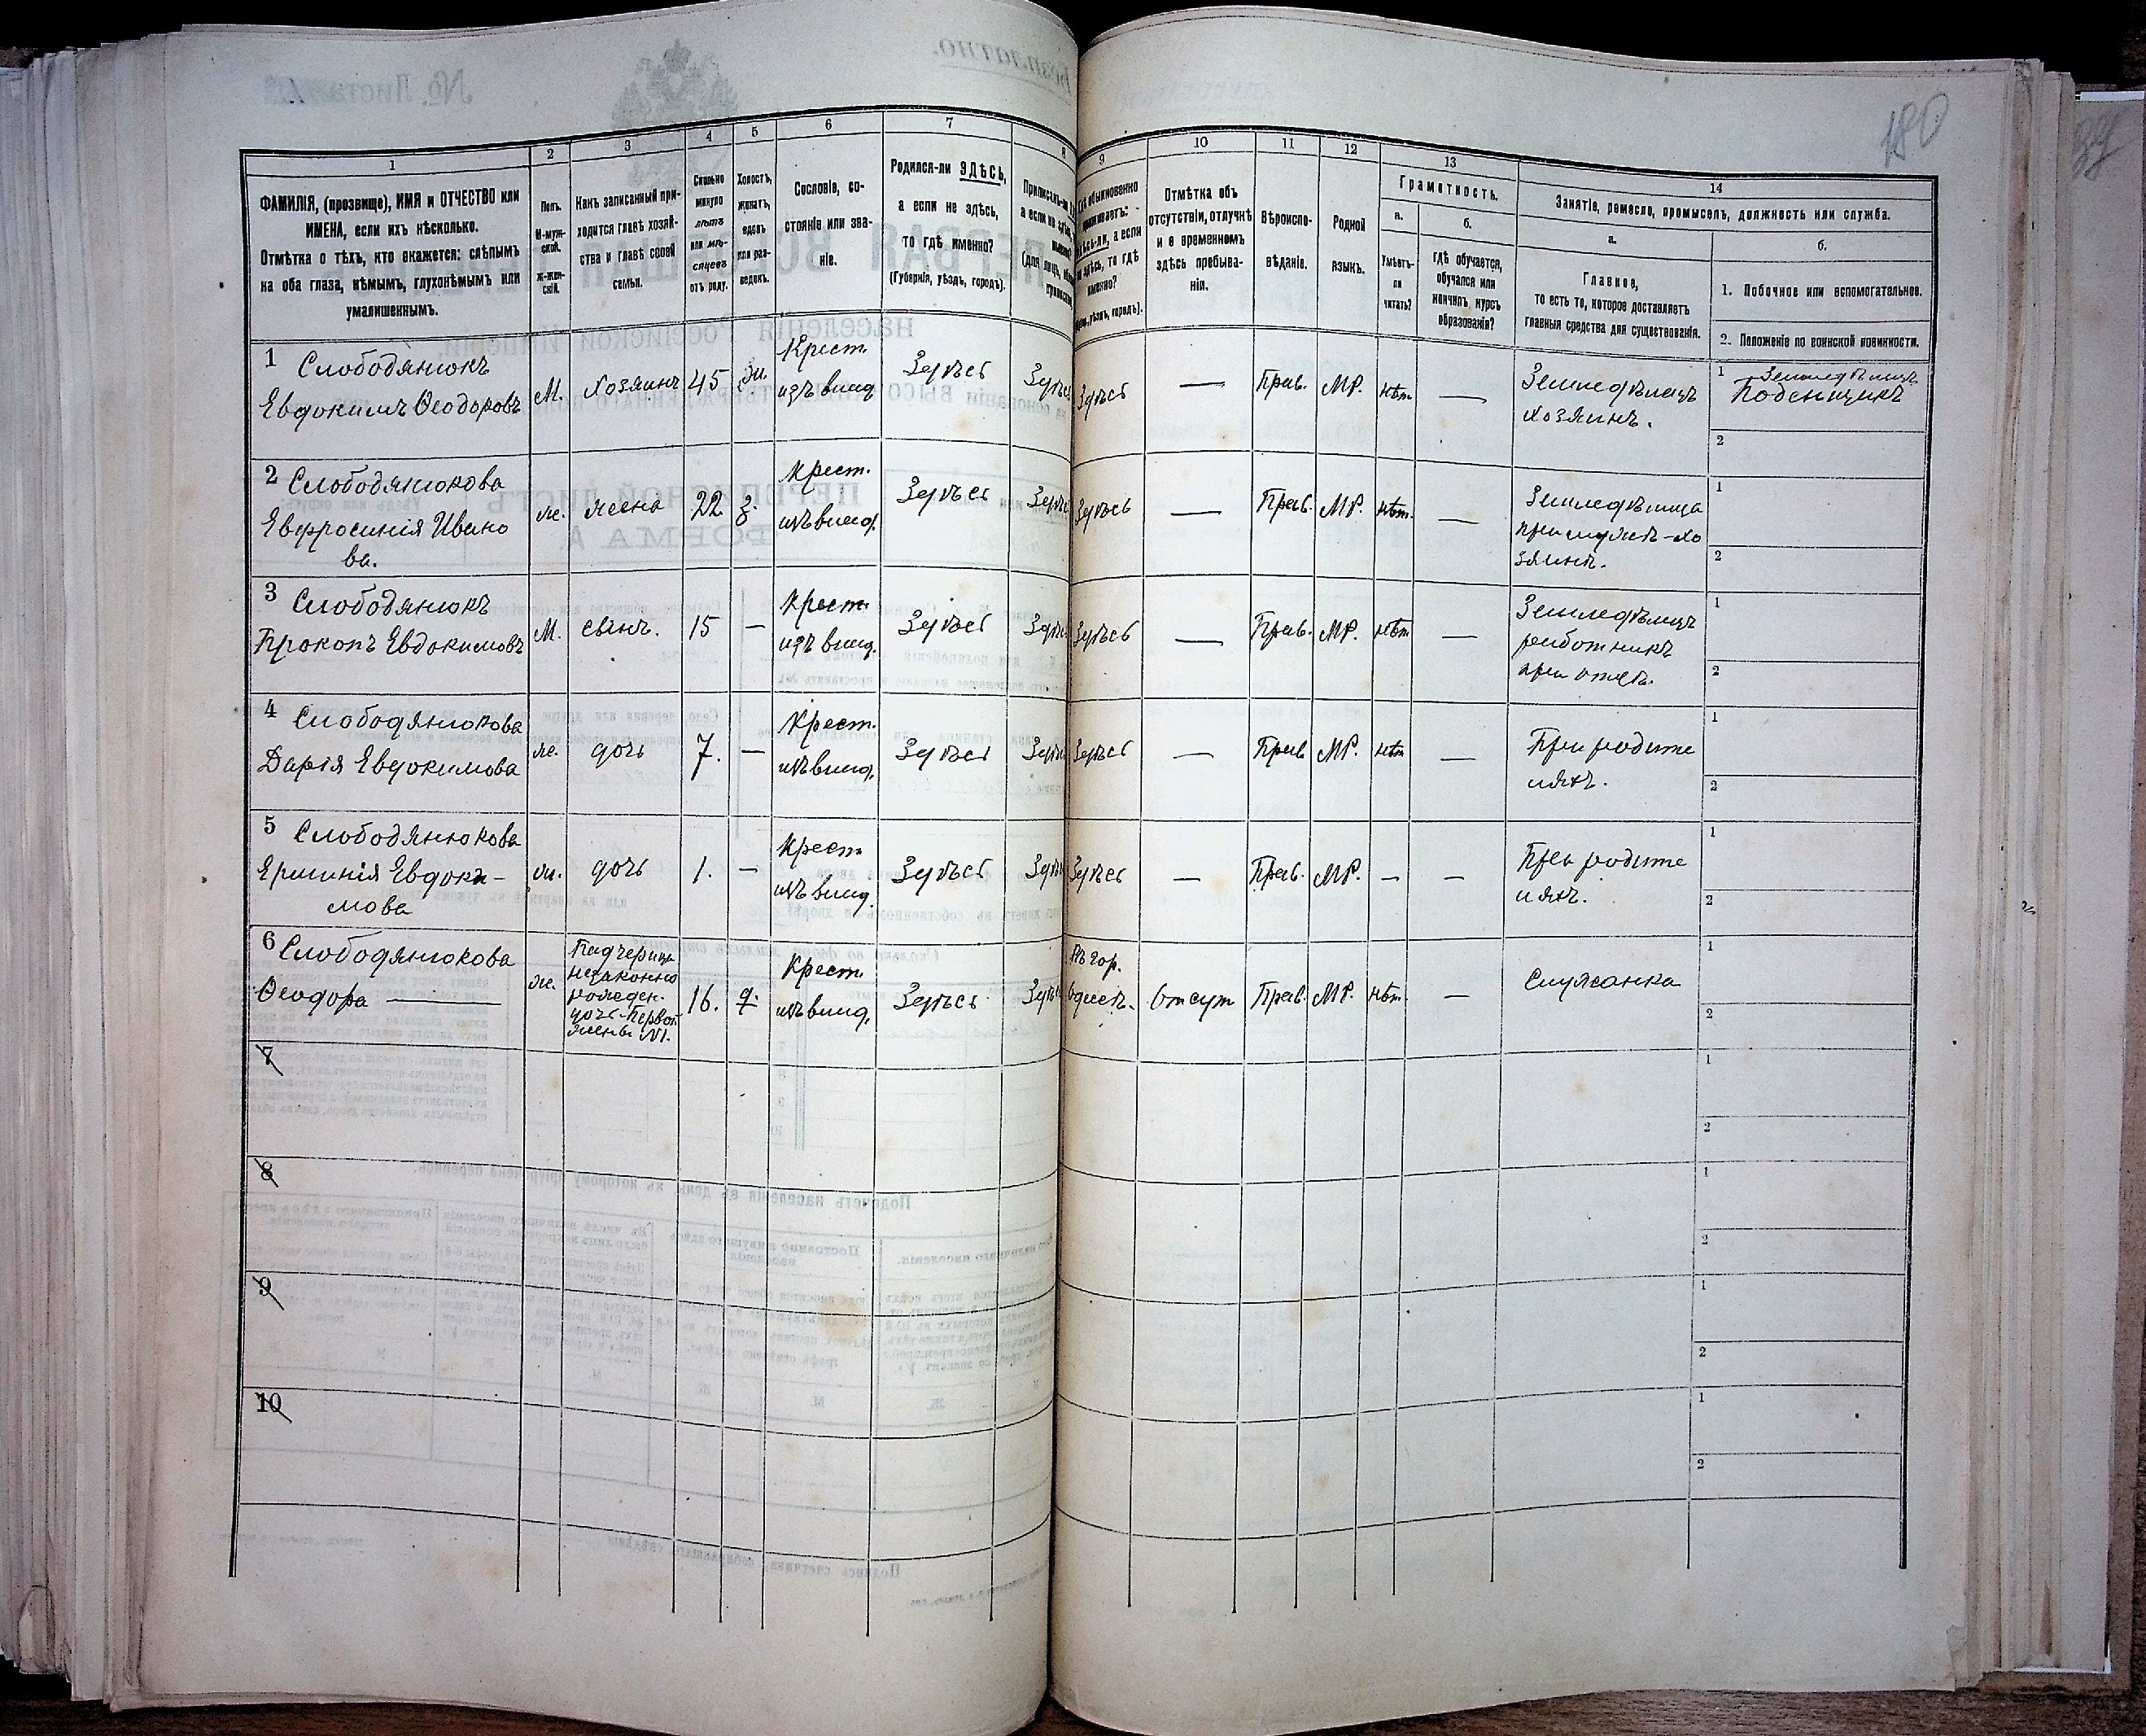 180
1
2
3
4
5
6
7
8
9
10
11
12
13
14
ФАМИЛІЯ, (прозвище), ИМЯ и ОТЧЕСТВО или
ИМЕНА, если ихъ нѣсколько.
Отмѣтка о тѣхъ, кто окажется: слѣпымъ
на оба глаза, нѣмымъ, глухонѣмымъ или
умалишеннымъ.
Полъ.
М-муж-
ской.
Ж-жен-
скій.
Какъ записанный при-
ходится главѣ хозяй-
ства и главѣ своей
семьи.
Сколько
минуло
лѣтъ
или мѣ-
сяцевъ
отъ роду.
Холостъ,
женатъ,
вдовъ
или раз-
веденъ.
Сословіе, со-
стояніе или зва-
ніе.
Родился-ли ЗДѢСЬ,
а если не здѣсь,
то гдѣ именно?
(Губернія, уѣздъ, городъ).
Отмѣтка объ
отсутствіи, отлучкѣ
и о временномъ
здѣсь пребыва-
ніи.
Вѣроиспо-
вѣданіе.
Родной
языкъ.
Грамотность.
а.
Умѣетъ-
ли
читать?
б.
гдѣ обучается,
обучался или
кончилъ курсъ
образованія?
Занятіе, ремесло, промыселъ, должность или служба.
а.
Главное,
то есть то, которое доставляетъ
главныя средства для существованія.
б.
1. Побочное или вспомогательное.
2. Положеніе по воинской повинности.
1 Слободянюкъ
Евдокимъ Ѳеодоровъ
М. Хозяинъ 45 жн.
Крест.
изъ влад
Здѣсь Здѣсь Здѣсь — Прав. МР. нѣт —
Земледѣлецъ
хозяинъ.
1 Земледѣлецъ
Поденщикъ
2
2 Слободянюкова
Евфросинія Ивано
ва.
ж. жена 22 з.
Крест.
изъ влад.
Здѣсь Здѣсь Здѣсь — Прав. МР. нѣт. —
Земледѣлица
при мужѣ-хо
зяинѣ.
1
2
3 Слободянюкъ
Прокопъ Евдокимовъ
М. сынъ. 15 —
Крест.
изъ влад.
Здѣсь Здѣсь Здѣсь — Прав. МР. нѣт —
Земледѣлецъ
работникъ
при отцѣ.
1
2
4 Слободянюкова
Дарія Евдокимова
ж. дочь 7. —
Крест.
изъ влад.
Здѣсь Здѣсь Здѣсь — Прав МР. нѣт —
При родите
ляхъ.
1
2
5 Слободянюкова
Ерминія Евдоки-
мова
ж. дочь 1. —
Крест
изъ влад.
Здѣсь Здѣсь Здѣсь — Прав. МР. — —
При родите
ляхъ.
1
2
6 Слободянюкова
Ѳеодора —
ж.
Падчерица
незаконно
рожден.
дочь первой
жены №1.
16. д.
Крест.
изъ влад.
Здѣсь Здѣсь
Въ гор.
Одессѣ.
Отсут Прав. МР. нѣт. —
Служанка
1
2
7
1
2
8
1
2
9
1
2
10
1
2